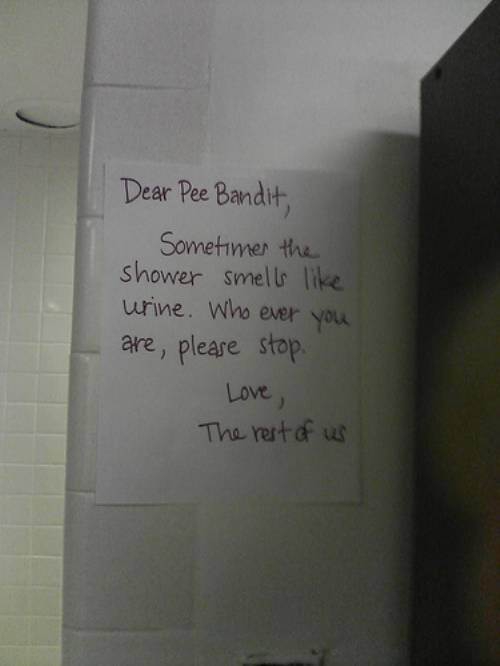 Dear Pee Bandit,
Sometimes the
shower smells like
urine. Who ever you
are, please stop.
Love,
The rest of us